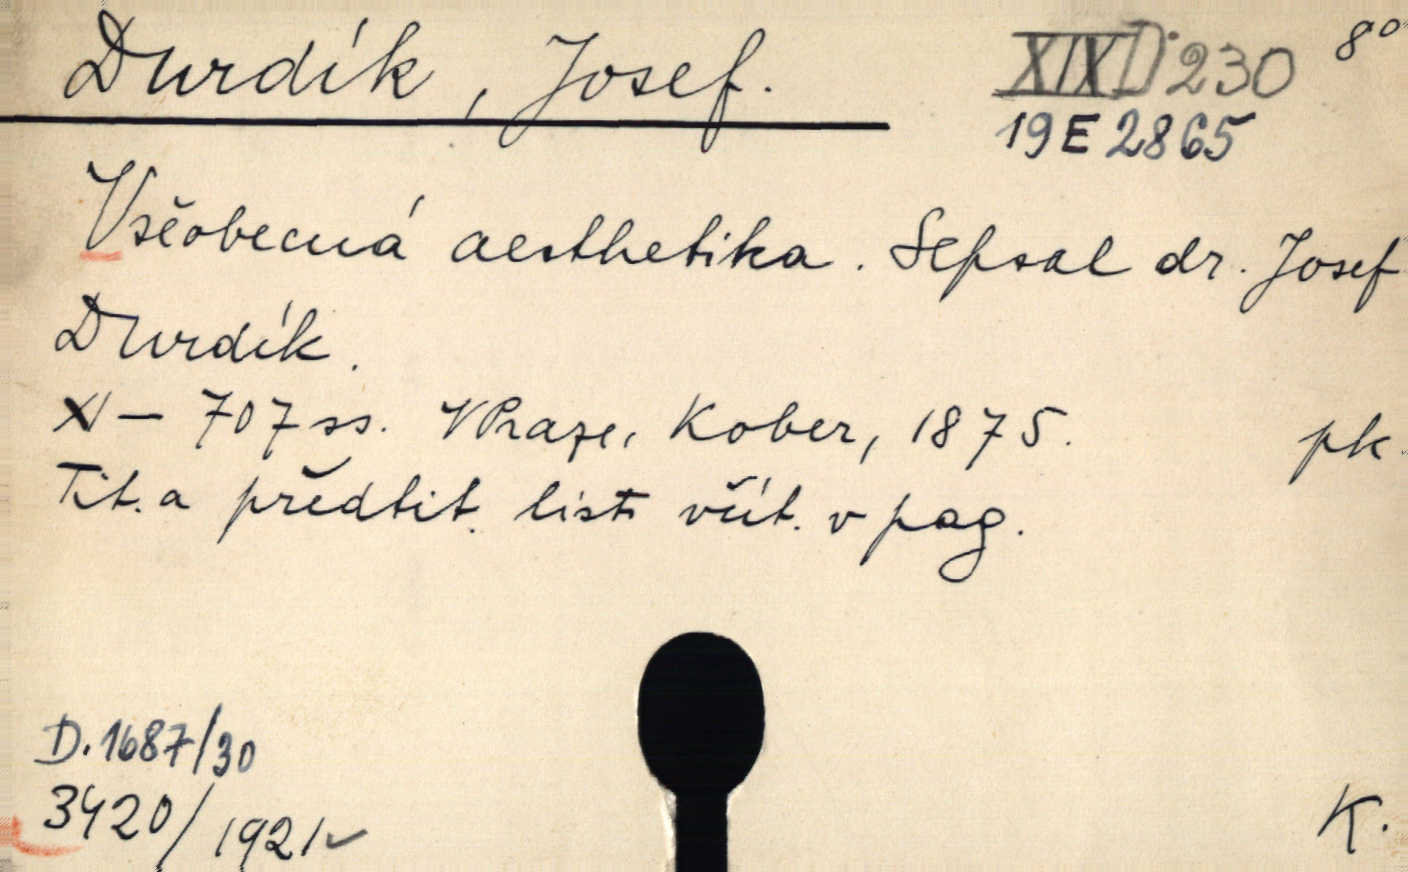 Durdík, Josef.
XIX D 230
8°
19 E 2865
Všeobecná aesthetika. Sepsal dr. Josef
Durdík.
XI — 707 ss. V Praze, Kober, 1875.
pk.
Tit. a předtit. list včít. v pag.
D. 1687/30
3420/1921
K.